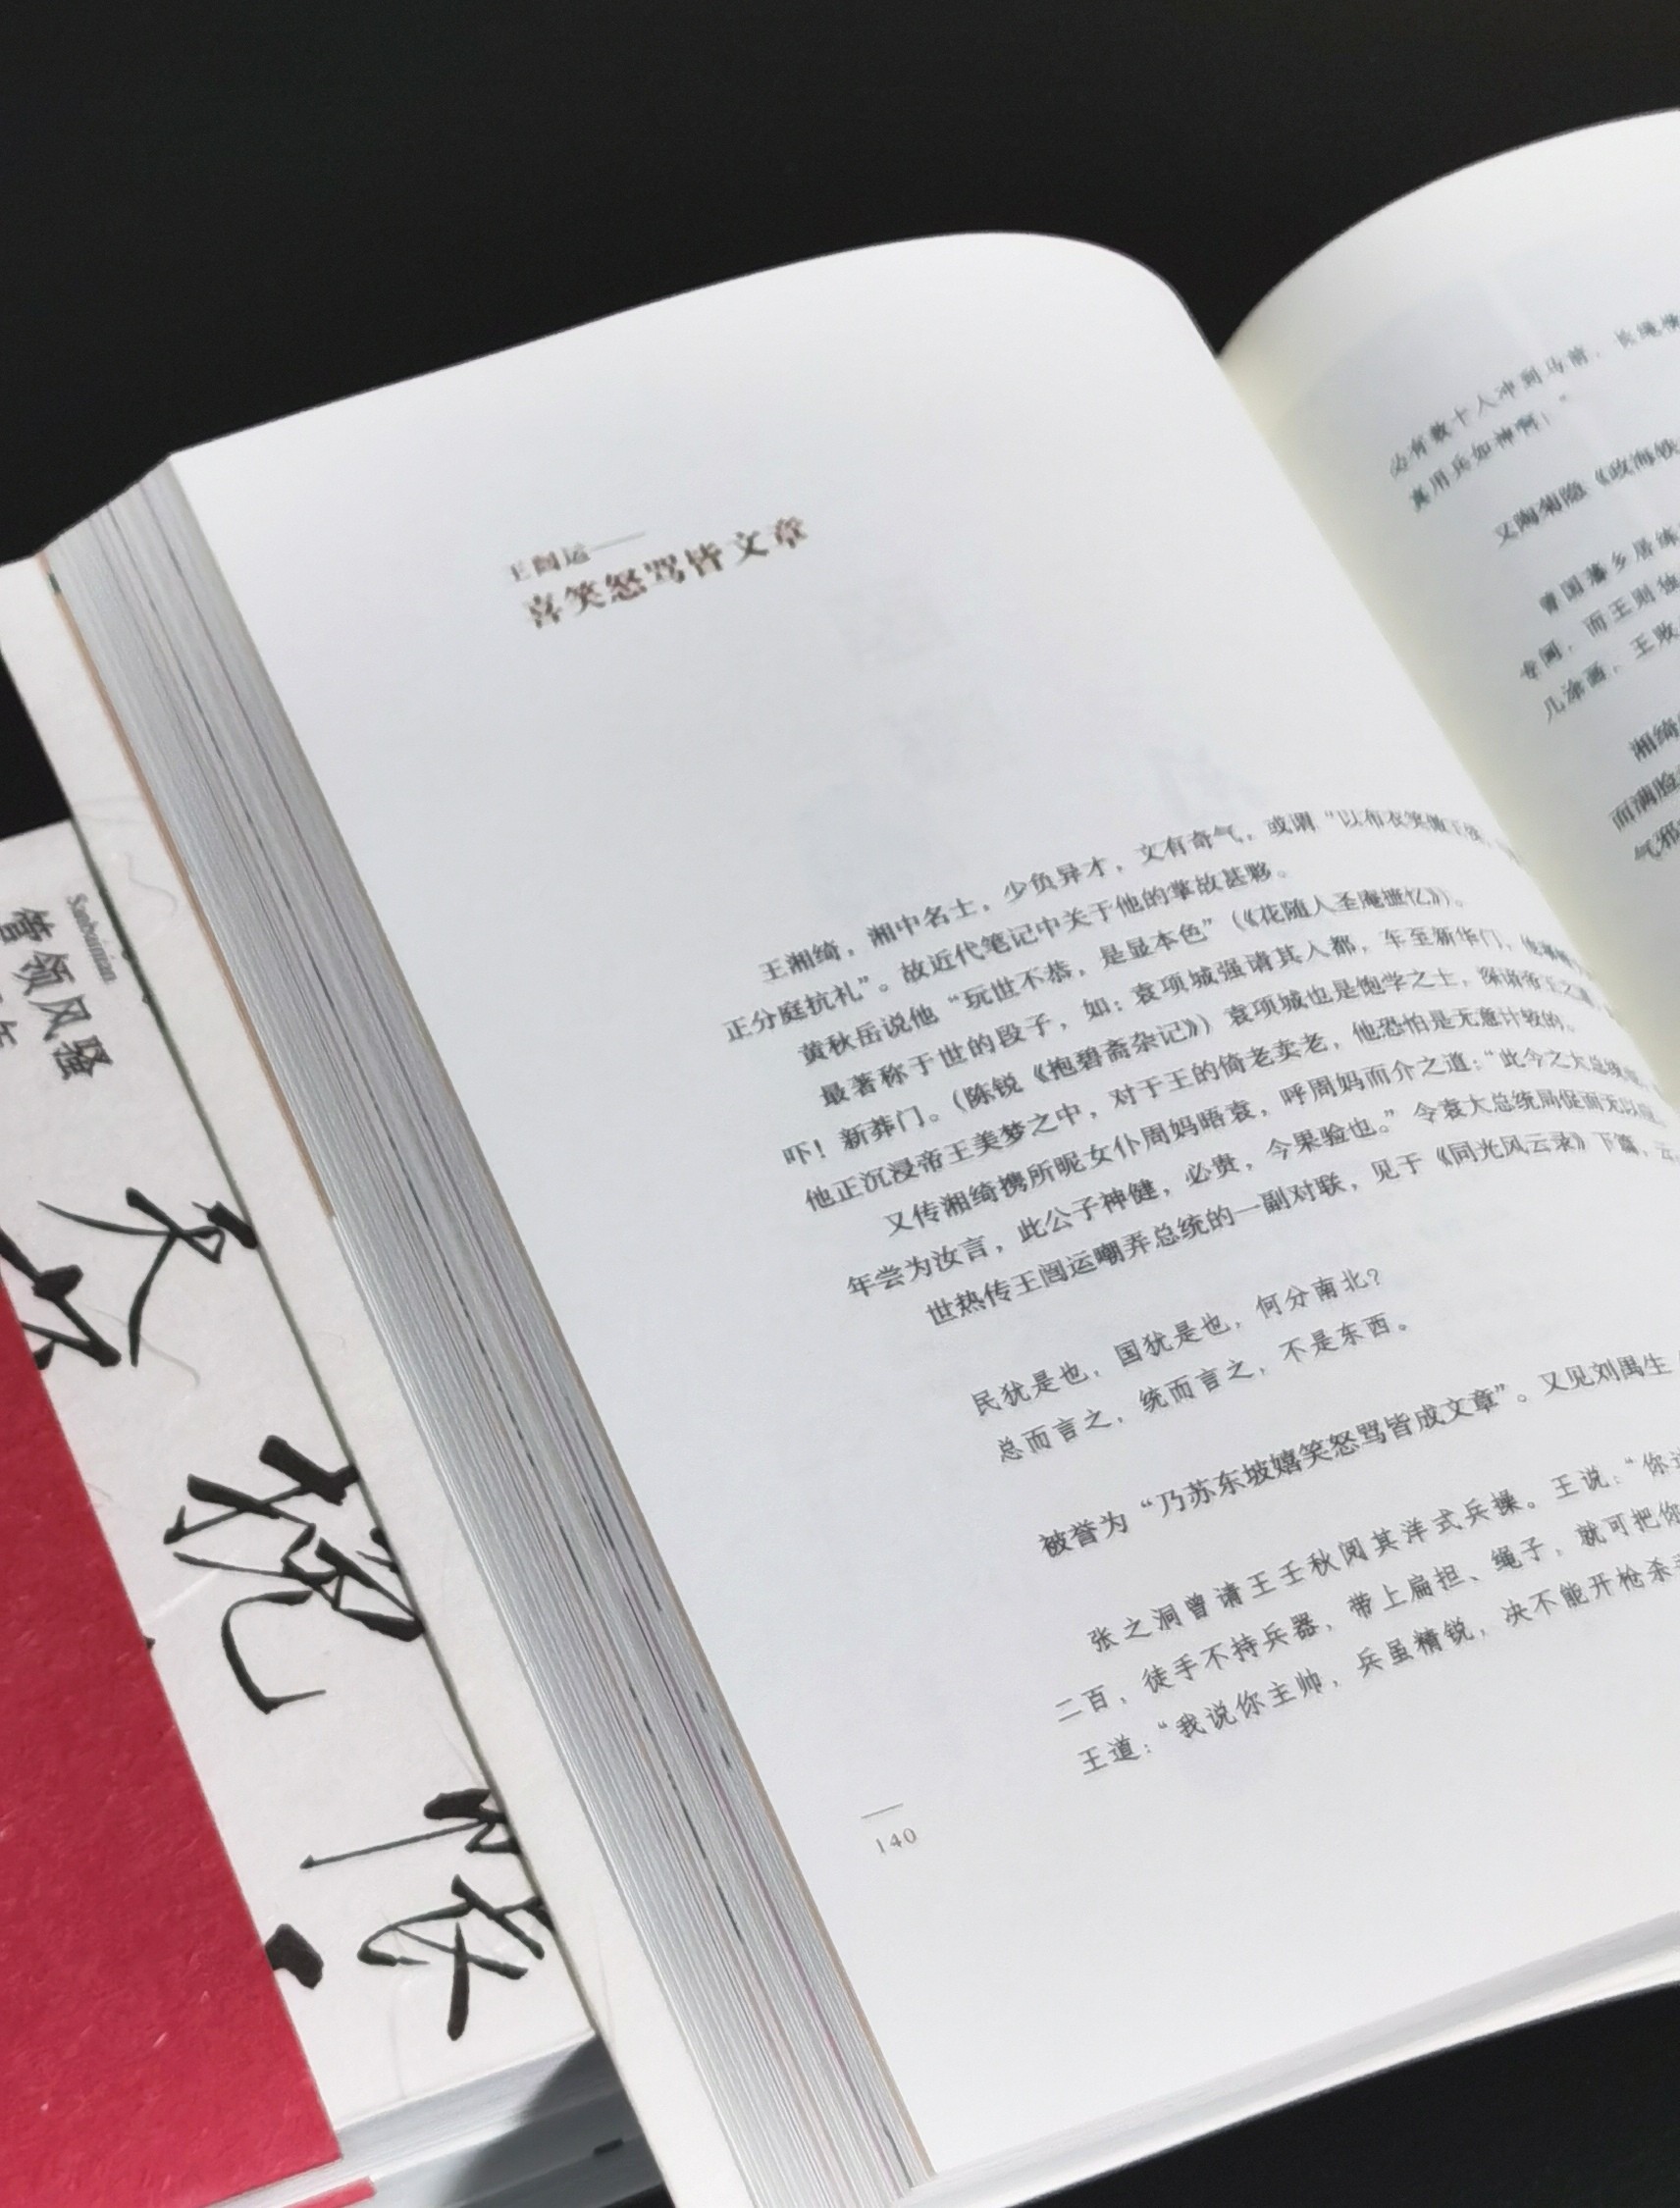 王闿运——
喜笑怒骂皆文章
王湘绮，湘中名士，少负异才，文有奇气，或谓“以布衣笑傲王侯，
正分庭抗礼”。故近代笔记中关于他的掌故甚夥。
黄秋岳说他“玩世不恭，是显本色”（《花随人圣庵摭忆》）。
最著称于世的段子，如：袁项城强请其入都，车至新华门，
吓！新莽门。（陈锐《抱碧斋杂记》）袁项城也是饱学之士，深谙帝王之
他正沉浸帝王美梦之中，对于王的倚老卖老，他恐怕是无意计较的。
又传湘绮携所昵女仆周妈晤袁，呼周妈而介之道：“此今之大总统
年尝为汝言，此公子神健，必贵，今果验也。”令袁大总统局促而无以
世热传王闿运嘲弄总统的一副对联，见于《同光风云录》下篇，云
民犹是也，国犹是也，何分南北？
总而言之，统而言之，不是东西。
被誉为“乃苏东坡嬉笑怒骂皆成文章”。又见刘禺生
张之洞曾请王壬秋阅其洋式兵操。王说：“你
二百，徒手不持兵器，带上扁担、绳子，就可把你
王道：“我说你主帅，兵虽精锐，决不能开枪杀
140
必有数十人冲到马前，长绳
真用兵如神啊！”
又陶菊隐《政海轶
曾国藩乡居练
专阃，而王则独
几涂画，王败
湘绮
而满脸
气邪
Sanbainian
领风骚